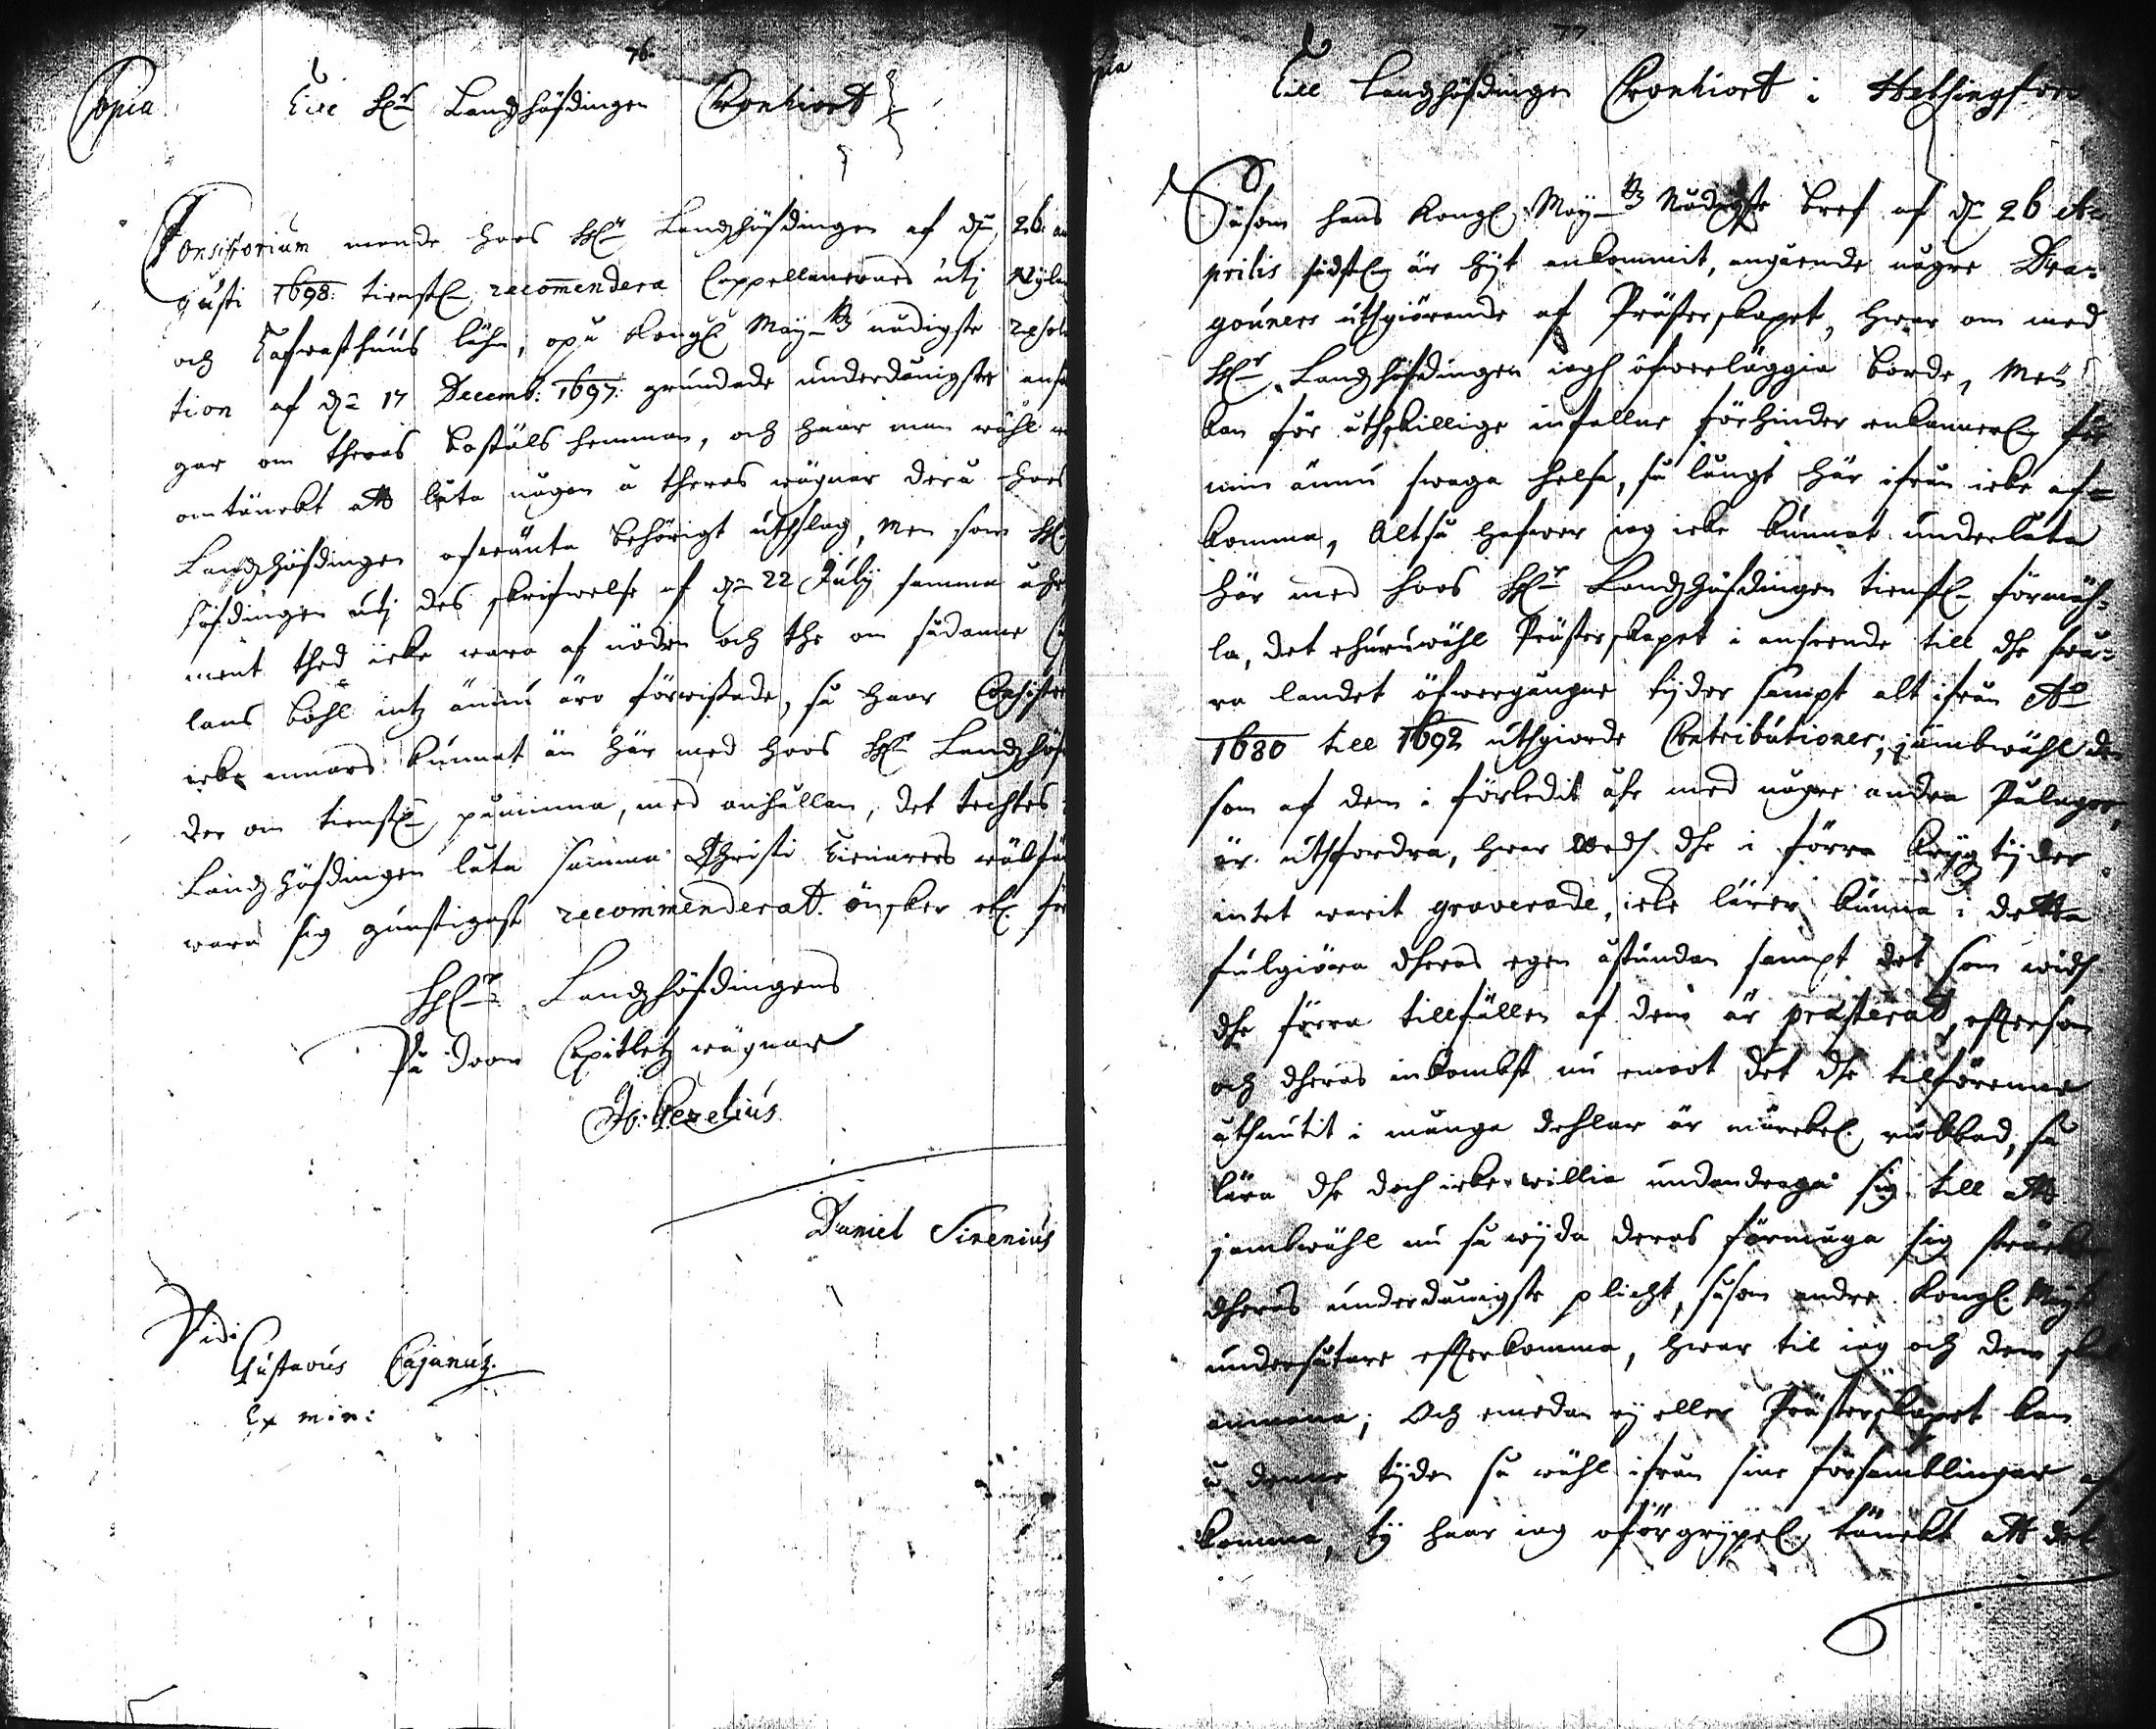 76.
Copia Till H:r Landzhöfdingen Cronhiort
Consistorium monde hoos H:r Landzhöfdingen af d: 26 au
gusti 1698: tienstl: recommendera Cappellanernas utj Nyla
och Tafwasthuus lähn, opå Kongl: May:tz nådigste resolu
tion af d: 17 Decemb: 1697: grundade underdånigste ansö
gar om theras bostäls hemman, och haar man wähl
omtänckt att låta någon å theras wägnar der å hoos
Landzhöfdingen afwänta behörigt uthslag, Men som H:
höfdingen utj des skrifwelse af d: 22 Julij samma åhr
ment thed icke wara af nöden och the om sådanne
lans böhl intz ännu äro förwissade, så haar Consisto
icke annars kunnat än här med hoos H:r Landzhöf
der om tienstl: påminna, med anhållan, det techtes
Landzhöfdingen låta samma Christi tienarers wälfä
wara sig gunstigast recommenderat. önsker etc: för
H:r Landzhöfdingens
På Dom Capitletz wägnar
Joh: Gezelius
Daniel Sirenius
Vidi
Gustavus Cajanus.
Ex min:
77
pia
Till Landzhöfdingen Cronhiort i Helsingfors
Såsom hans Kongl: May:tz Nådigste bref af d: 26 A-
prilis sidstl: är hijt ankommit, angående någre Dra-
gouners uthgiörande af Prästerskapet, hwar om med
H:r Landzhöfdingen iagh öfwerläggia borde, Men
kan för åthskillige infallne förhinder enkannerl: för
min ännu swaga helsa, så långt här ifrån icke af-
komma, Altså hafwer iag icke kunnat underlåta
här med hoos H:r Landzhöfdingen tienstl: förmäh-
la, det ehuruwähl Prästerskapet i anseende till dhe swå-
ra landet öfwergångne tijder sampt alt ifrån A:o
1680 till 1692 uthgiorde Contributioner; jämbwähl den
som af dem i förledit åhr med någre andra Pålagor,
är uthfordra, hwar medh dhe i förra krijgztijder
intet warit graverade, icke lärer kunna i detta
fulgiöra dheras egen åstundan sampt det som widh
dhe förra tillfällen af dem är præsterat, efterson
och dheras inkombst nu emoot det dhe tilförenne
åthniutit i många dehlar är märckel: rubbad, så
lära dhe doch icke willia undandraga sig till att
jembwähl nu så wijda deras förmåga sig sträcker
dheras underdånigste plicht, såsom andre Kongl: May:tz
undersåtare efterkomma, hwar til iag och dem skal
anmana; Och emedan ey eller Prästerskapet kan
å denne tijden så wähl ifrån sine församblingar af
komma, ty haar iag oförgrijpel: tänckt att det